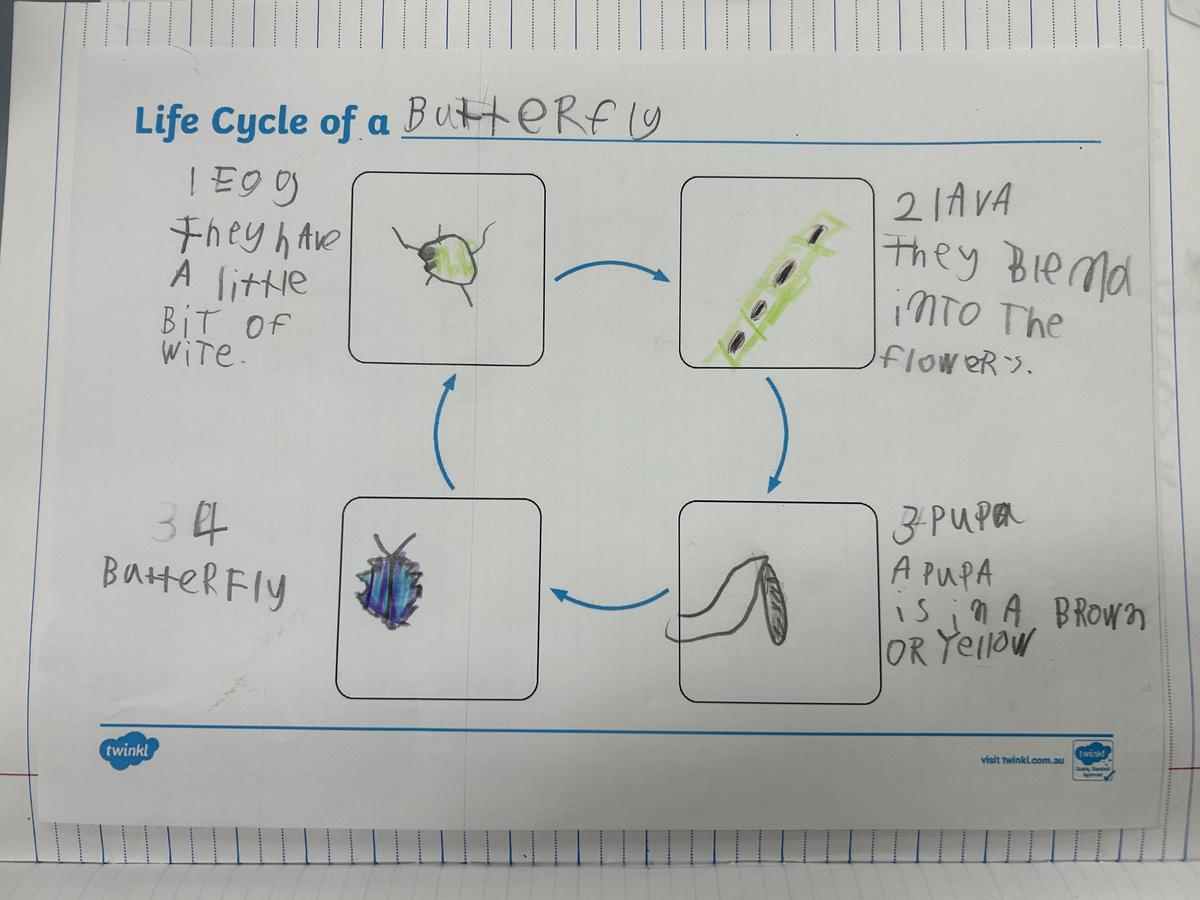 Life Cycle of a ButteRfly
1 Egg
They hAve
A little
BiT OF
wiTe.
2 lAvA
They Blend
inTO The
floweRs.
3 PuPa
A PuPA
is in A BROwn
OR Yellow
3 4
ButteRFly
twinkl
visit twinkl.com.au
twinkl
Quality Standard
Approved